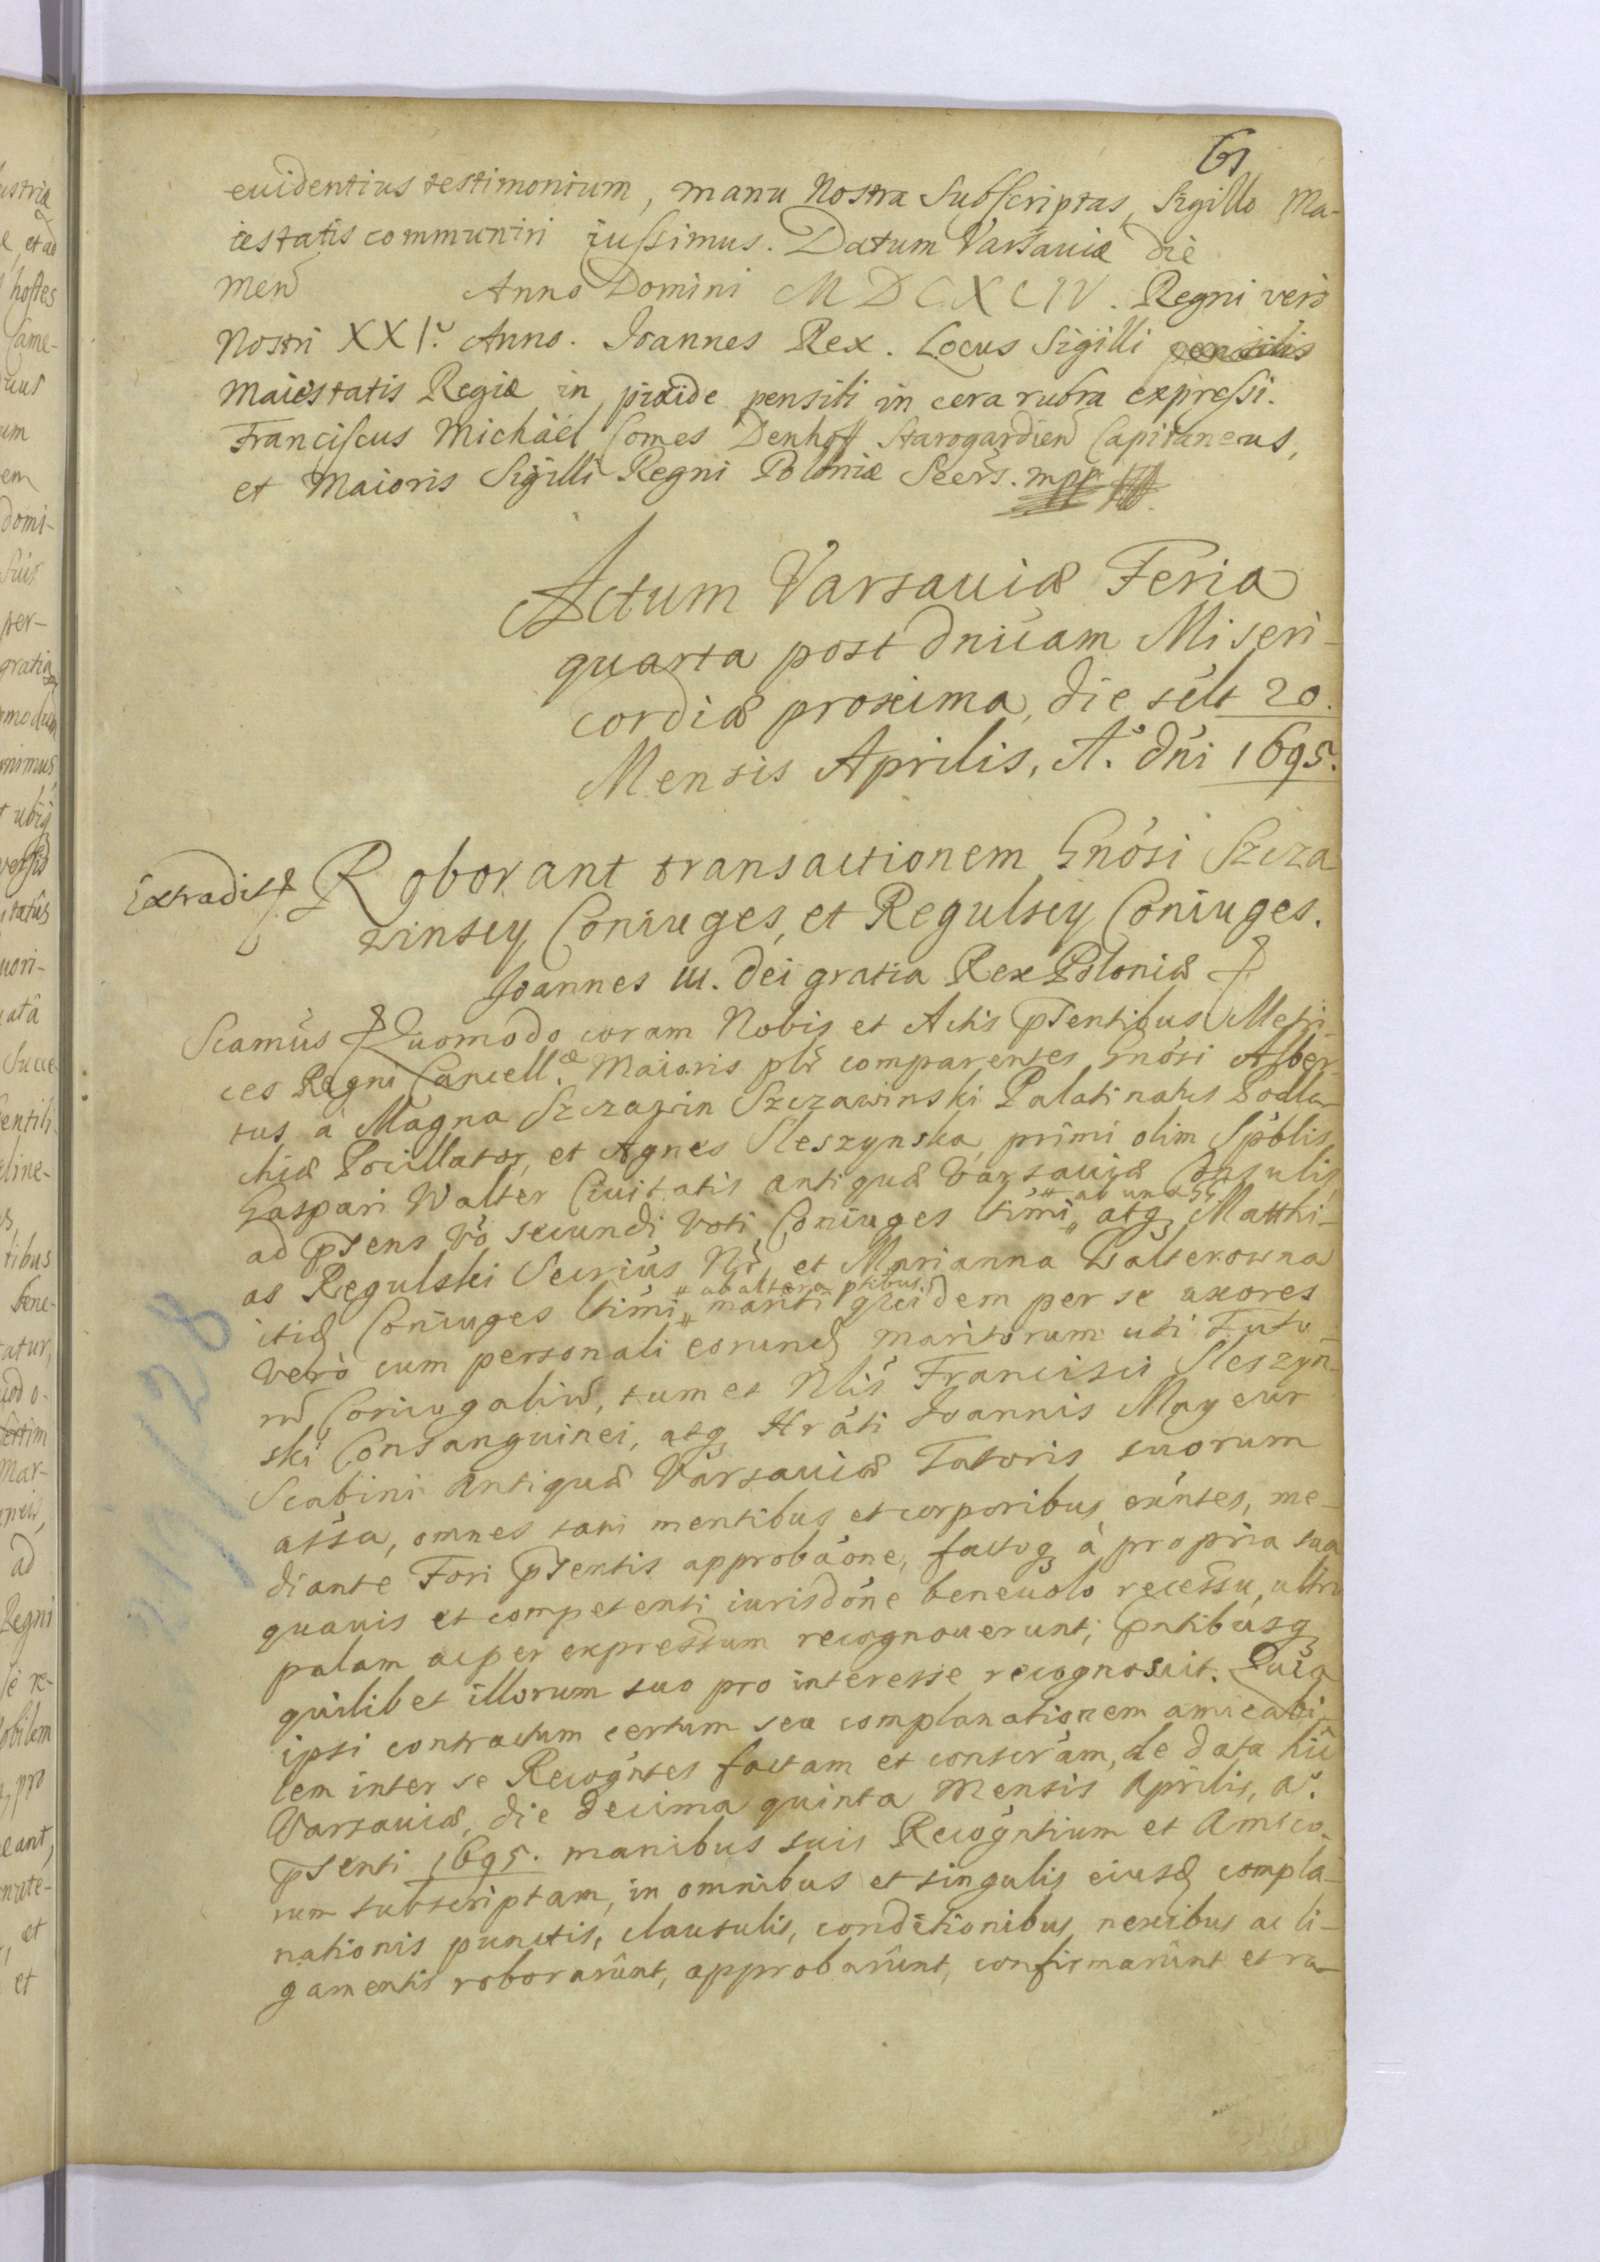 61
euidentius testimonium, manu Nostra Subscriptas, Sigillo Ma-
iestatis communiri iussimus. Datum Varsauiæ die
men̄ Anno Domini MDCXCIV. Regni verò
Nostri XXIº. Anno. Joannes Rex. Locus Sigilli
Maiestatis Regiæ in pixide pensili in cera rubra expressi.
Franciscus Michaël Comes Denhoff Starogardien̄ Capitaneus,
et Maioris Sigilli Regni Poloniæ Secrs. mpp
Actum Varsauiæ Feria
quarta post Dnicam Miseri-
cordiæ proxima, die sclt 20.
Mensis Aprilis, A. Dni 1695.
Extradit
Roborant transactionem Gnosi Szcza
winscy Coniuges, et Regulscy Coniuges.
Joannes III. Dei gratia Rex Poloniæ
Scamus Quomodo coram Nobis et Actis pñtentibus Metri-
ces Regni Cancell.æ Maioris plr comparentes Gnosi Alber-
tus à Magna Szczawin Szczawinski Palatinatus Podla-
chiæ Pocillator, et Agnes Sleszynska, primi olim Spblis
Gaspari Walter Ciuitatis antiquæ Varsauiæ Consulis
ad pñtens vo secundi voti Coniuges ltimi ab una atq Matthi-
as Regulski Secrius Nr, et Marianna Walterowna
itid Coniuges ltimi ab altera ptibus mariti quidem per se uxores
verò cum personali eorund maritorum uti Tuto-
rū Coniugaliū, tum et Nlis Francisci Sleszyn-
ski Consanguinei, atq Hrati Joannis Mayeur
Scabini Antiquæ Varsauiæ Tutoris suorum
assa, omnes sani mentibus et corporibus exntes, me-
diante Fori pñtentis approbaone, factoq à propria sua
quauis et competenti iurisdone beneuolo recessu, ultro
palam ac per expressum recognouerunt, pntibusq
quilibet illorum suo pro interesse recognoscit. Quia
ipsi contractum certum seu complanationem amicabi-
lem inter se Recogntes factam et conscram, de data hic
Varsauiæ, die decima quinta Mensis Aprilis, A.
pñtenti 1695. manibus suis Recogntium et Amico-
rum subscriptam, in omnibus et singulis eiusd compla-
nationis punctis, clausulis, conditionibus, nexibus ac li-
gamentis roborarunt, approbarunt, confirmarunt et ra-